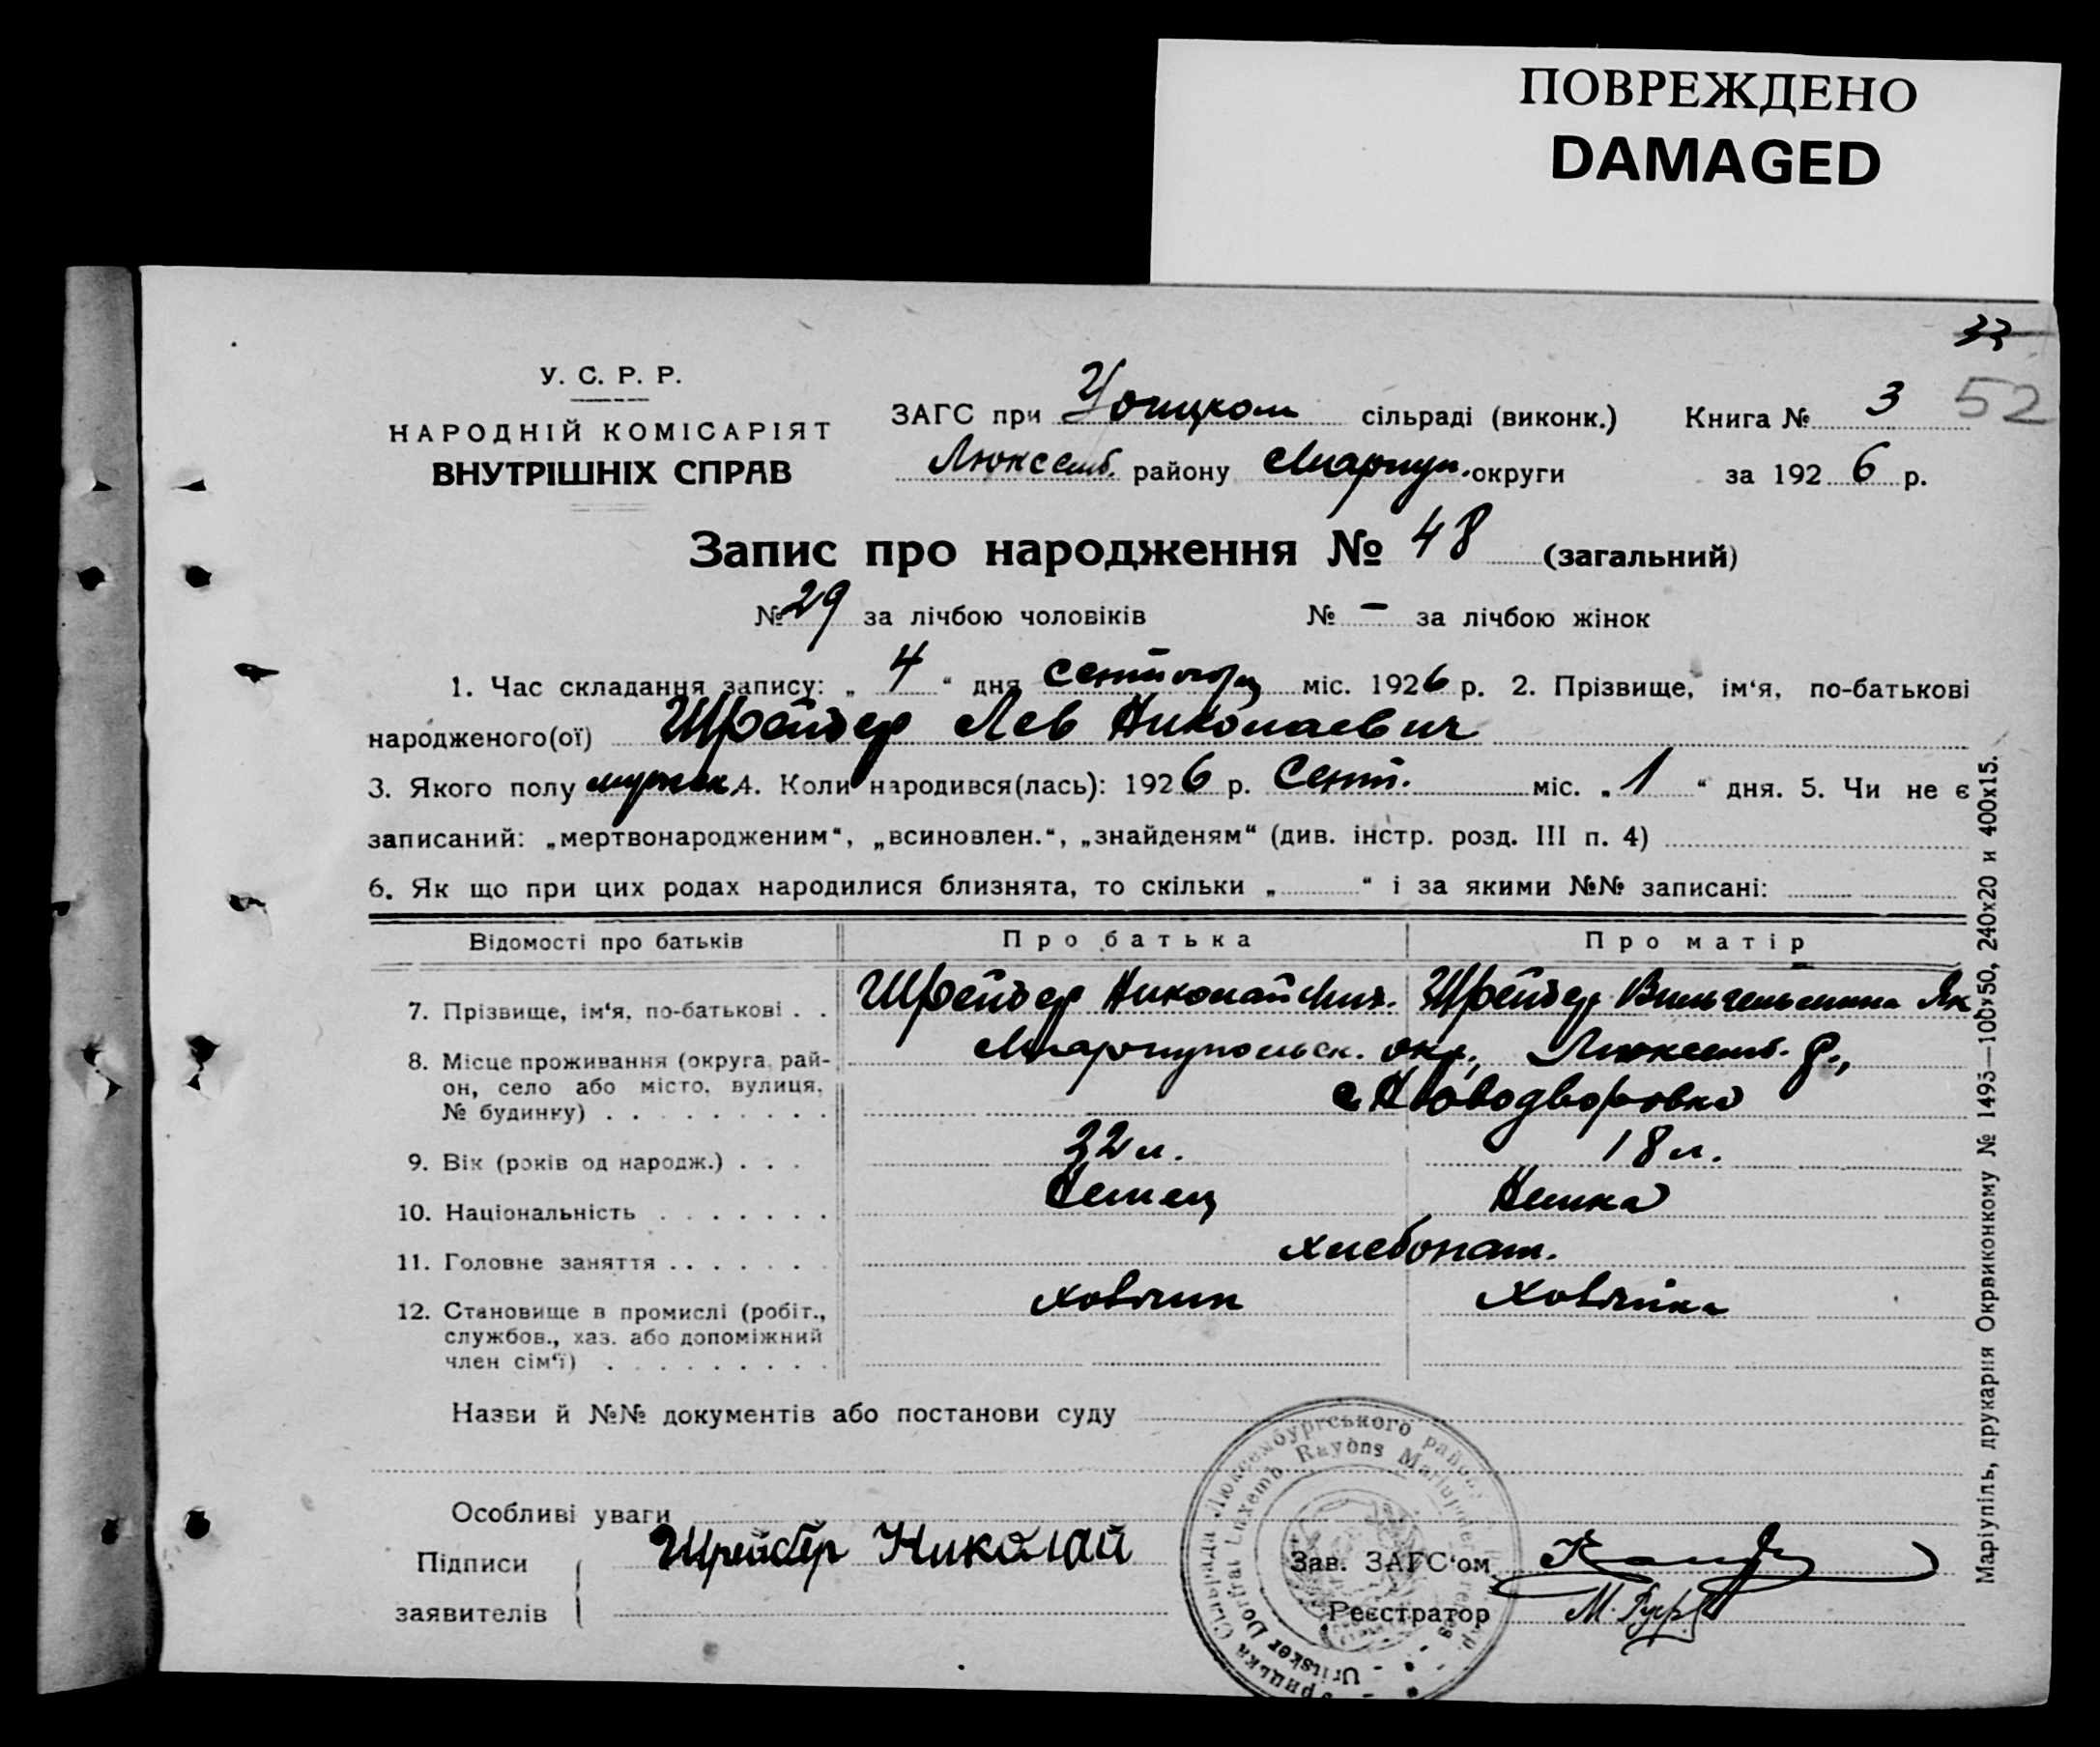 ПОВРЕЖДЕНО
DAMAGED
33
52
У. С. Р. Р.
НАРОДНІЙ КОМІСАРІЯТ
ВНУТРІШНІХ СПРАВ
ЗАГС при Урицком сільраді (виконк.) Книга № 3
Люксемб. району Мариуп. округи за 1926 р.
Запис про народження № 48 (загальний)
№ 29 за лічбою чоловіків № – за лічбою жінок
1. Час складання запису: „ 4 “ дня сентября міс. 1926 р. 2. Прізвище, ім‘я, по-батькові
народженого(ої) Шрейдер Лев Николаевич
3. Якого полу мужск. 4. Коли народився(лась): 1926 р. Сент. міс. „ 1 “ дня. 5. Чи не є
записаний: „мертвонародженим“, „всиновлен.“, „знайденям“ (див. інстр. розд. III п. 4)
6. Як що при цих родах народилися близнята, то скільки „ “ і за якими №№ записані:
Відомості про батьків Про батька Про матір
7. Прізвище, ім‘я, по-батькові . . Шрейдер Николай Шрейдер Вильгельмина Як.
8. Місце проживання (округа, рай- Мариупольск. окр., Люксемб. р.,
он, село або місто, вулиця, с. Новодворовка
№ будинку) . . . . . . . . .
9. Вік (років од народж.) . . . 32 л. 18 л.
10. Національність . . . . . . . Немец Немка
11. Головне заняття . . . . . . . хлебопаш.
12. Становище в промислі (робіт.,
службов., хаз. або допоміжний
член сім‘ї) . . . . . . . . .
Назви й №№ документів або постанови суду
Особливі уваги
Підписи Шрейдер Николай Зав. ЗАГС‘ом
заявителів Реєстратор М.
Урицька Сільрада Люксембургського району
Uritsker Dorfrat Luxemb Rayons Mariupoler Kreises
Маріупіль, друкарня Окрвиконкому № 1493—100х50, 240х20 и 400х15.